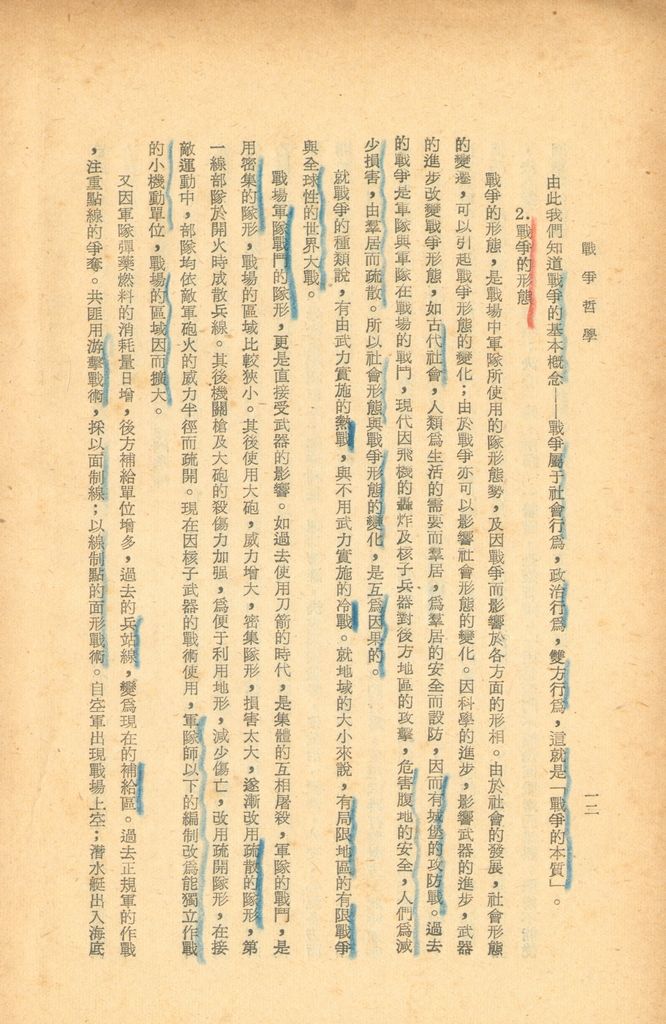 戰爭哲學
一二
由此我們知道戰爭的基本概念——戰爭屬于社會行爲，政治行爲，雙方行爲，這就是「戰爭的本質」。
2.戰爭的形態
戰爭的形態，是戰場中軍隊所使用的隊形態勢，及因戰爭而影響於各方面的形相。由於社會的發展，社會形態
的變遷，可以引起戰爭形態的變化；由於戰爭亦可以影響社會形態的變化。因科學的進步，影響武器的進步，武器
的進步改變戰爭形態，如古代社會，人類爲生活的需要而羣居，爲羣居的安全而設防，因而有城堡的攻防戰。過去
的戰爭是軍隊與軍隊在戰場的戰鬥，現代因飛機的轟炸及核子兵器對後方地區的攻擊，危害腹地的安全，人們爲減
少損害，由羣居而疏散。所以社會形態與戰爭形態的變化，是互爲因果的。
就戰爭的種類說，有由武力實施的熱戰，與不用武力實施的冷戰。就地域的大小來說，有局限地區的有限戰爭
與全球性的世界大戰。
戰場軍隊戰鬥的隊形，更是直接受武器的影響。如過去使用刀箭的時代，是集體的互相屠殺，軍隊的戰鬥，是
用密集的隊形，戰場的區域比較狹小。其後使用大砲，威力增大，密集隊形，損害太大，遂漸改用疏散的隊形，第
一線部隊於開火時成散兵線。其後機關槍及大砲的殺傷力加强，爲便于利用地形，減少傷亡，改用疏開隊形，在接
敵運動中，部隊均依敵軍砲火的威力半徑而疏開。現在因核子武器的戰術使用，軍隊師以下的編制改爲能獨立作戰
的小機動單位，戰場的區域因而擴大。
又因軍隊彈藥燃料的消耗量日增，後方補給單位增多，過去的兵站線，變爲現在的補給區。過去正規軍的作戰
，注重點線的爭奪。共匪用游擊戰術，採以面制線；以線制點的面形戰術。自空軍出現戰場上空；潛水艇出入海底